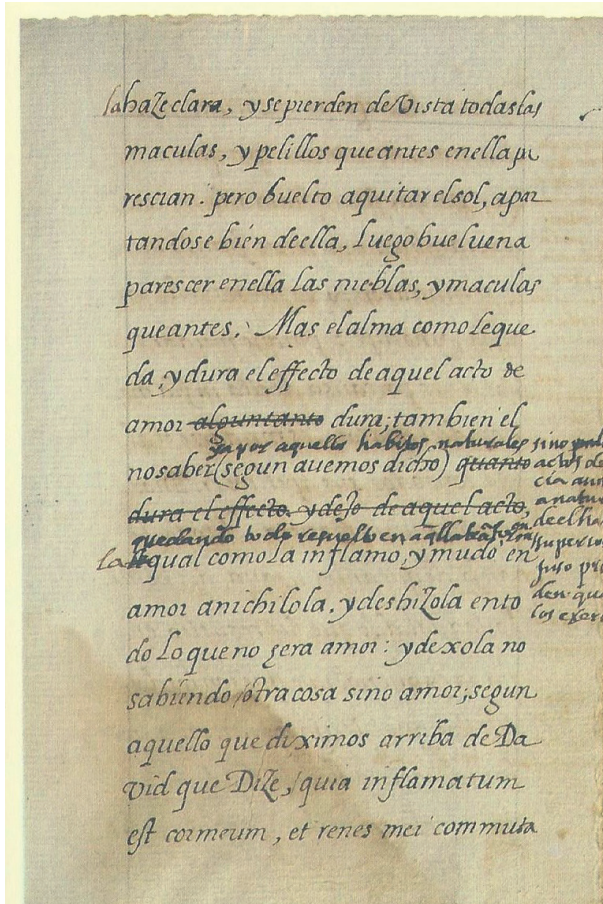 la haze clara, y se pierden de vista todas las
maculas, y pelillos que antes en ella pa
rescian: pero buelto a quitar el sol, apar
tandose bien de ella, luego buelven a
parescer en ella las nieblas, y maculas
que antes. Mas el alma como le que
da, y dura el effecto de aquel acto de
amor alguntanto dura; tambien el
ya por aquellos habitos naturales sino
no saber (segun avemos dicho) quanto actos de
dura el effecto. y dejo de aquel acto,
quedando todo resuelto en aquella
la qual como la inflamo, y mudo en
amor anichilola, y deshizola en to
do lo que no era amor: y dexola no
sabiendo otra cosa sino amor; segun
aquello que diximos arriba de Da
vid que Dize, quia inflamatum
est cor meum, et renes mei commuta